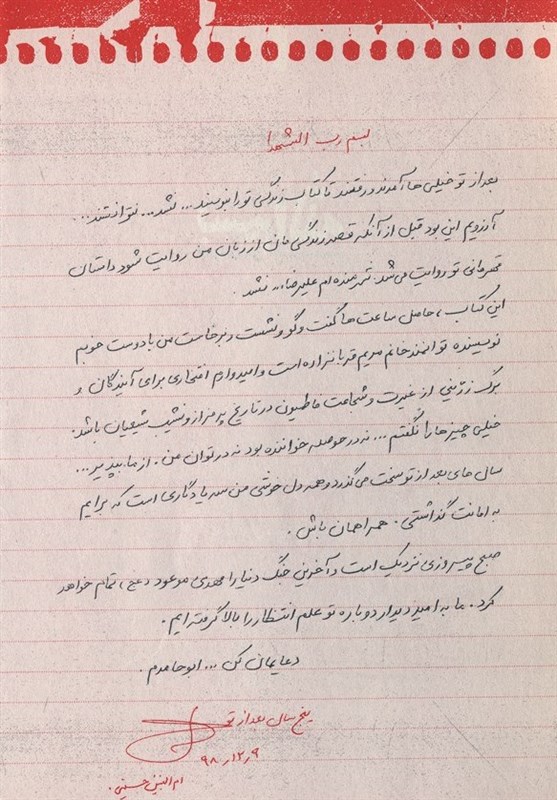 بسم رب الشهدا
بعد از تو خیلی ها آمدند و رفتند تا کتاب زندگی تو را بنویسند... نشد... نتوانستند...
آرزویم این بود قبل از آنکه قصه زندگی مان از زبان من روایت شود داستان
قهرمانی تو روایت می شد. شرمنده ام علیرضا... نشد.
این کتاب، حاصل ساعت ها گفت و گو و نشست و برخاست من با دوست خوبم
نویسنده توانمند خانم مریم قربانزاده است و امیدوارم افتخاری برای آیندگان و
برگ زرینی از غیرت و شجاعت فاطمیون در تاریخ پر فراز و نشیب شیعیان باشد.
خیلی چیزها را نگفتم... نه در حوصله خواننده بود نه در توان من. از ما بپذیر...
سال های بعد از تو سخت می گذرد و همه دل خوشی من سه یادگاری است که برایم
به امانت گذاشتی. همراهمان باش.
صبح پیروزی نزدیک است و آخرین جنگ دنیا را مهدی موعود (عج) تمام خواهد
کرد. ما به امید دیدار دوباره تو علم انتظار را بالا گرفته ایم.
دعایمان کن... ابوحامدم.
پنج سال بعد از تو
۹٫۱۲٫۹۸
ام البنین حسینی.